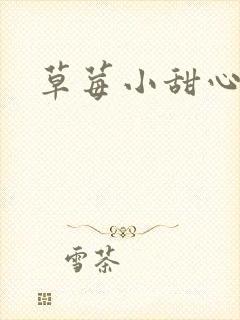 草莓小甜心
雪茶